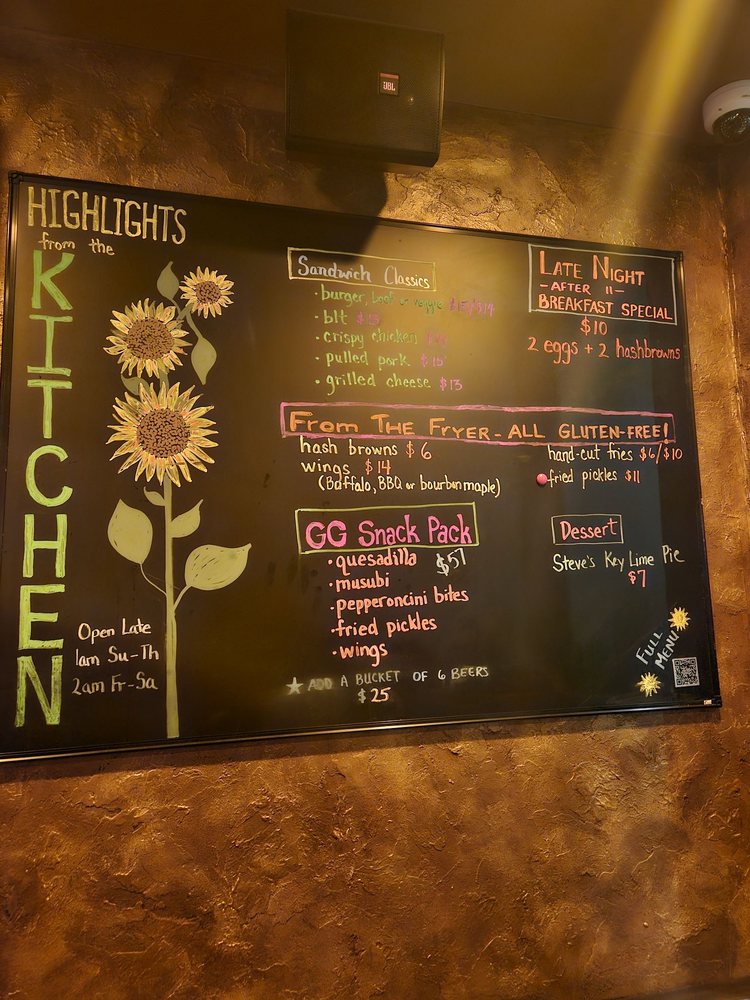 JBL
HIGHLIGHTS
from the
KITCHEN
Open Late
1am Su-Th
2am Fr-Sa
Sandwich Classics
· burger, beef or veggie $15/$14
· blt
· crispy chicken
· pulled pork $15
· grilled cheese $13
LATE NIGHT
-AFTER 11-
BREAKFAST SPECIAL
$10
2 eggs + 2 hashbrowns
FROM THE FRYER - ALL GLUTEN-FREE!
hash browns $6
wings $14
(Buffalo, BBQ or bourbon maple)
hand-cut fries $6/$10
fried pickles $11
GG Snack Pack
· quesadilla $57
· musubi
· pepperoncini bites
· fried pickles
· wings
ADD A BUCKET OF 6 BEERS
$25
Dessert
Steve's Key Lime Pie
$7
FULL
MENU